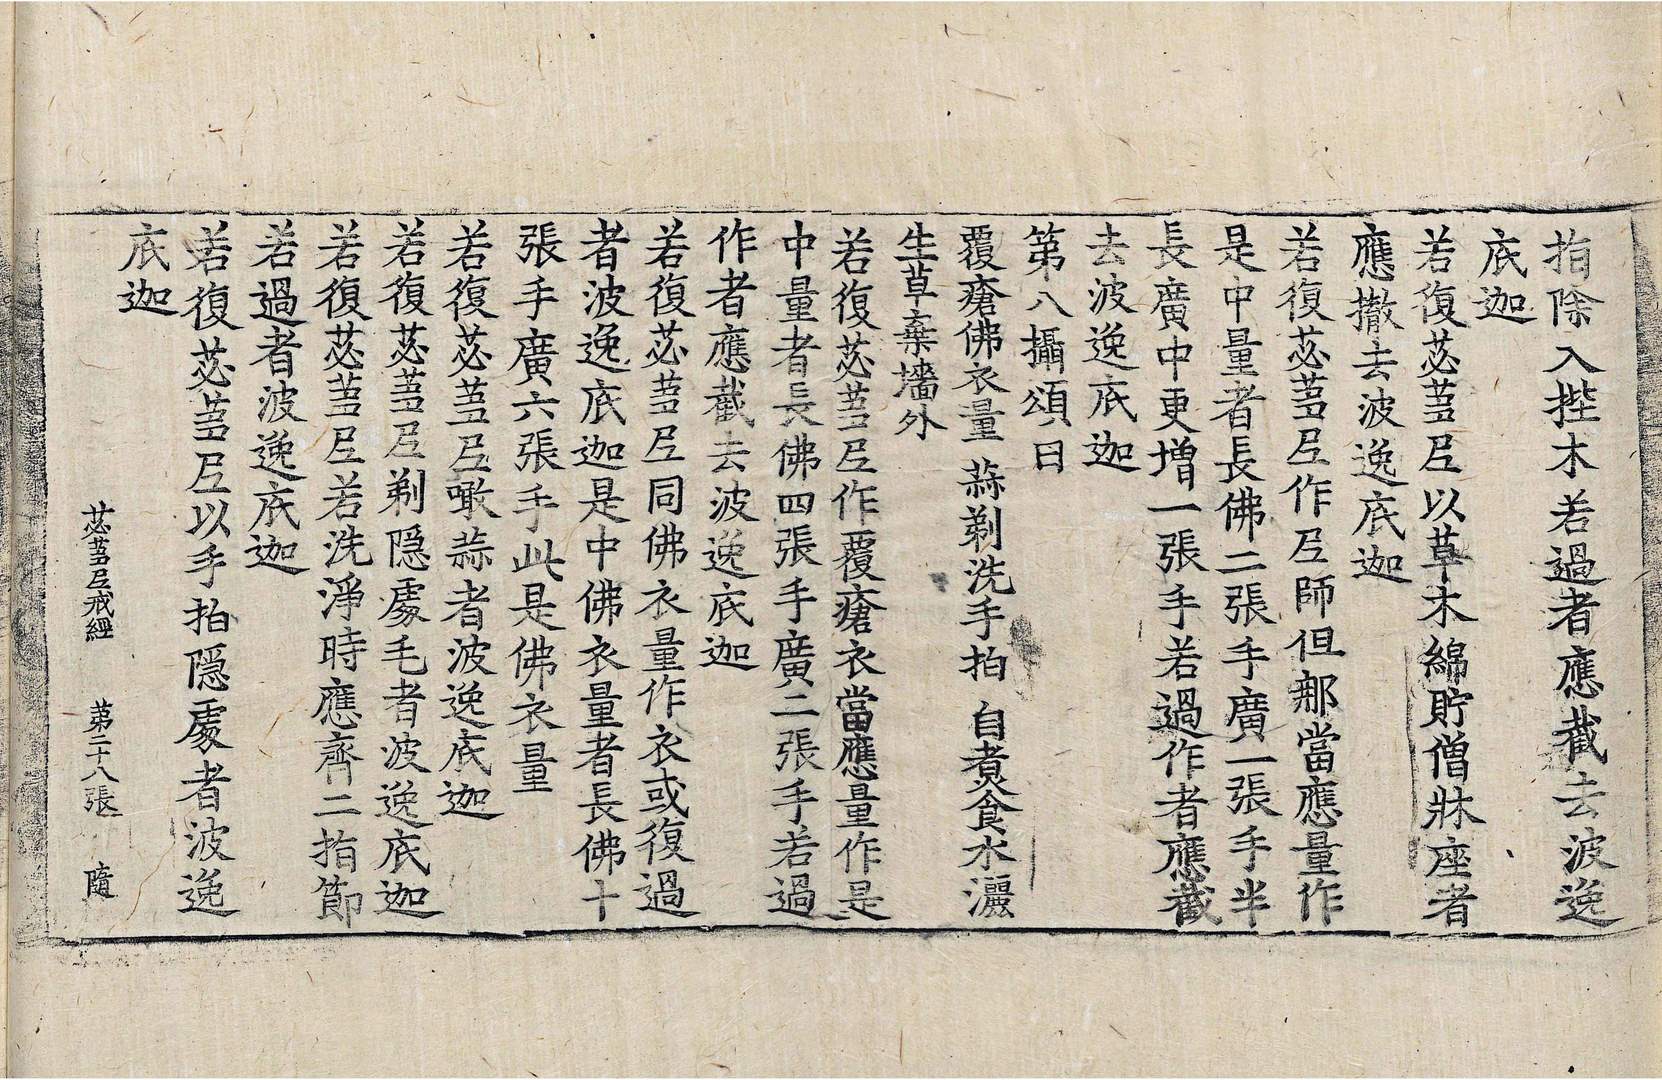 指除入㭼木若過者應截去波逸
底迦
若復苾芻尼以草木綿貯僧牀座者
應撤去波逸底迦
若復苾芻尼作尼師但那當應量作
是中量者長佛二張手廣一張手半
長廣中更增一張手若過作者應截
去波逸底迦
第八攝頌曰
覆瘡佛衣量 蒜剃洗手拍 自煮食水灑
生草棄墻外
若復苾芻尼作覆瘡衣當應量作是
中量者長佛四張手廣二張手若過
作者應截去波逸底迦
若復苾芻尼同佛衣量作衣或復過
者波逸底迦是中佛衣量者長佛十
張手廣六張手此是佛衣量
若復苾芻尼噉蒜者波逸底迦
若復苾芻尼剃隱處毛者波逸底迦
若復苾芻尼若洗淨時應齊二指節
若過者波逸底迦
若復苾芻尼以手拍隱處者波逸
底迦
苾芻尼戒經 第二十八張 隨